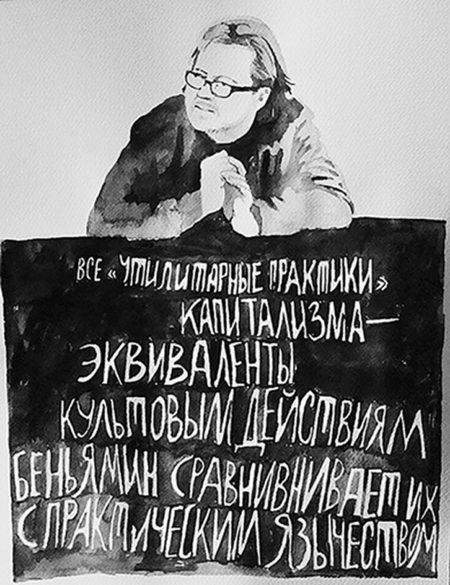 ВСЕ «УТИЛИТАРНЫЕ ПРАКТИКИ»
КАПИТАЛИЗМА—
ЭКВИВАЛЕНТЫ
КУЛЬТОВЫМ ДЕЙСТВИЯМ
БЕНЬЯМИН СРАВНИВНИВАЕТ ИХ
С ПРАКТИЧЕСКИМ ЯЗЫЧЕСТВОМ